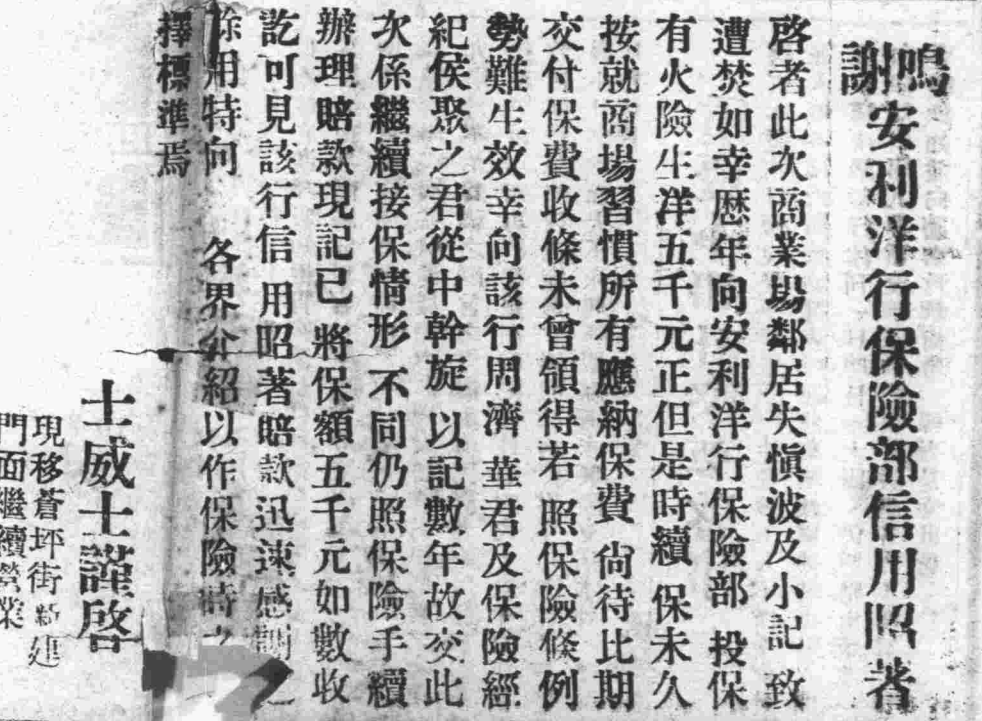 鳴謝安利洋行保險部信用昭著
啓者此次商業場鄰居失愼波及小記 致
遭焚如幸歷年向安利洋行保險部 投保
有火險生洋五千元正但是時續 保未久
按就商場習慣所有應納保費 尙待比期
交付保費收條未曾領得若 照保險條例
勢難生效幸向該行周濟 華君及保險經
紀侯聚之君從中幹旋 以記數年故交此
次係繼續接保情形 不同仍照保險手續
辦理賠款現記已 將保額五千元如數收
訖可見該行信 用昭著賠款迅速感謝之
餘用特向 各界介紹以作保險時之
擇標準焉
士威士謹啓
現移蒼坪街新建
門面繼續營業